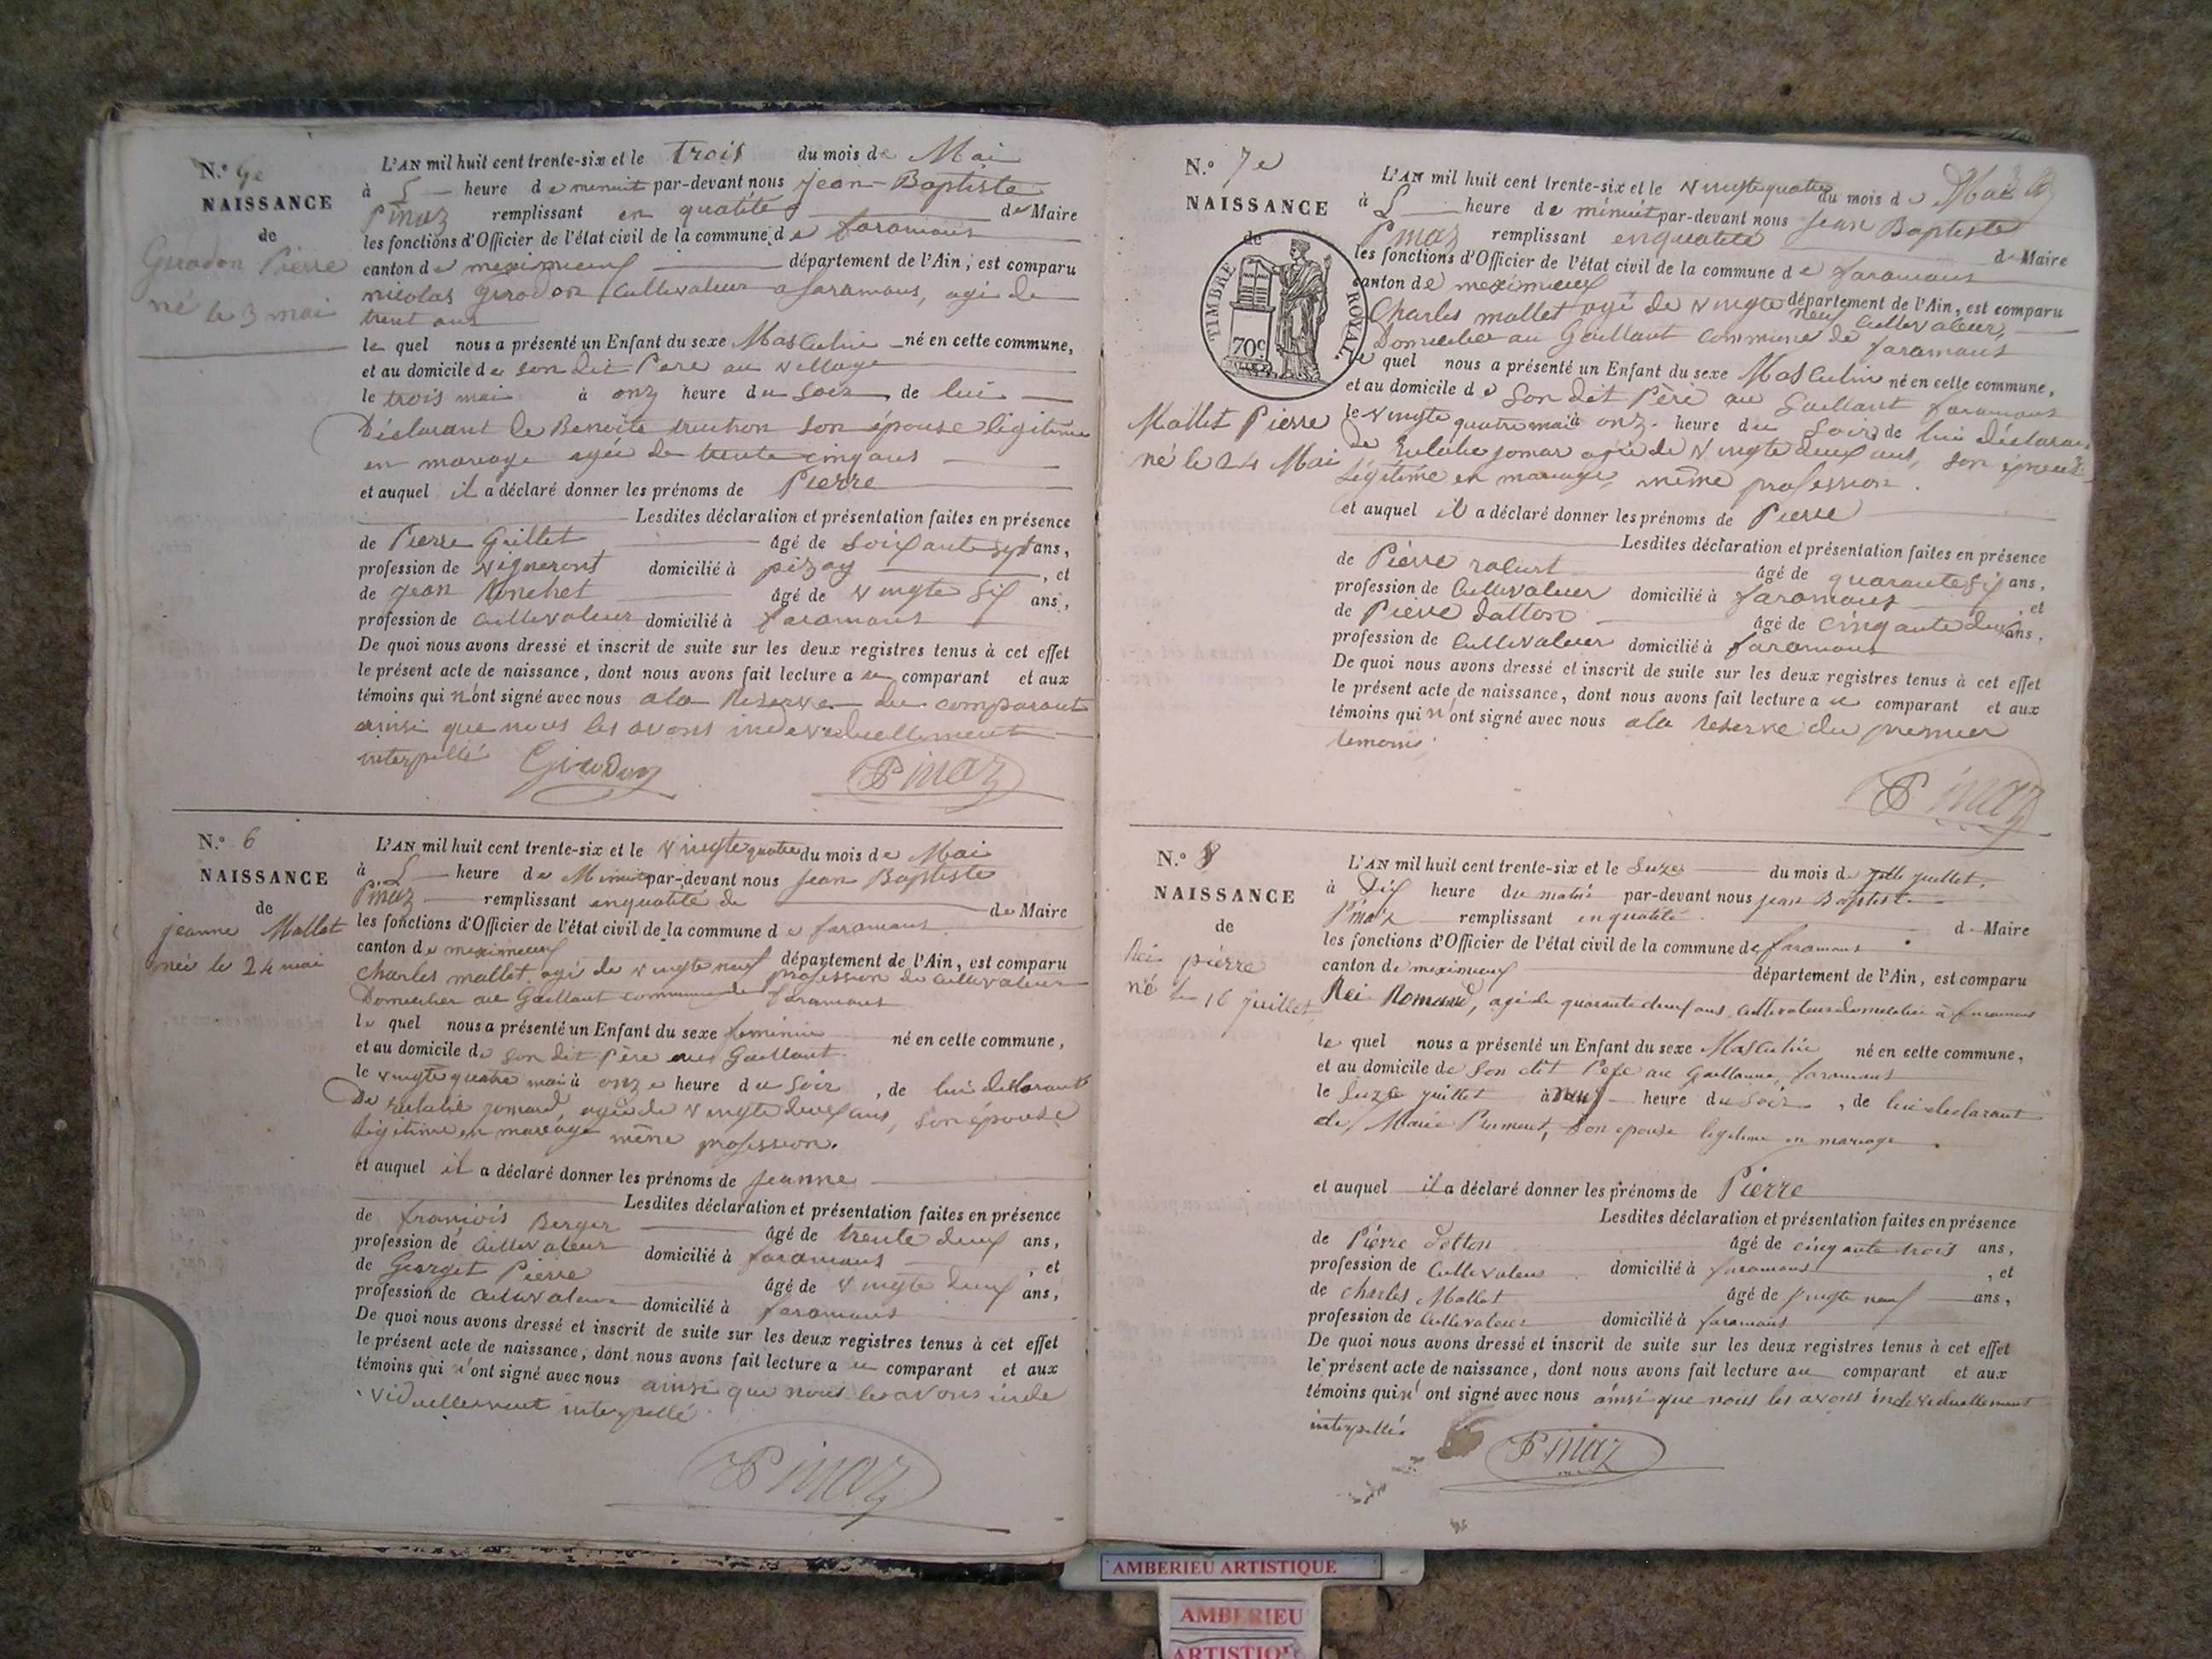 N.º
NAISSANCE
de
Pierre
né le 3 mai
L'AN mil huit cent trente-six et le trois du mois de Mai
à heure de minuit par-devant nous jean-Baptiste
Pinaz remplissant en qualité de Maire
les fonctions d'Officier de l'état civil de la commune de faramans
canton de meximieux département de l'Ain, est comparu
nicolas girodon Cultivateur a faramans, agé de
trent ans
le quel nous a présenté un Enfant du sexe Masculin né en cette commune,
et au domicile de son dit Pere au village
le trois mai à onz heure du soir de lui
Déclarant de Benoite truchon son épouse legitime
en mariage agée de trente cinq ans
et auquel il a déclaré donner les prénoms de Pierre
Lesdites déclaration et présentation faites en présence
de Pierre Guillet âgé de Soixante sept ans,
profession de vigneront domicilié à pizay, et
de jean âgé de vingte six ans,
profession de cultivateur domicilié à faramans
De quoi nous avons dressé et inscrit de suite sur les deux registres tenus à cet effet
le présent acte de naissance, dont nous avons fait lecture au comparant et aux
témoins qui n'ont signé avec nous ala Reserve du comparant
ainsi que nous les avons individuellement
interpellé Girodon Pinaz
N.º 6
NAISSANCE
de
jeanne Mallet
née le 24 mai
L'AN mil huit cent trente-six et le vingte quatre du mois de Mai
à heure de Minuit par-devant nous jean Baptiste
Pinaz remplissant enqualité de de Maire
les fonctions d'Officier de l'état civil de la commune de faramans
canton de meximieux département de l'Ain, est comparu
charles mallet agé de vingte neuf profession de cultivateur
Domicilier au Gaillant commune de faramans
le quel nous a présenté un Enfant du sexe feminin né en cette commune,
et au domicile de son dit Père au Gaillant
le vingte quatre mai à onze heure du soir, de lui déclarant
De Eulalie jomard, agée de vingte deux ans, son épouse
légitime en mariage même profession.
et auquel il a déclaré donner les prénoms de jeanne
Lesdites déclaration et présentation faites en présence
de françois Berger âgé de trente deux ans,
profession de cultivateur domicilié à faramans, et
de Georget Pierre âgé de vingte deux ans,
profession de cultivateur domicilié à faramans
De quoi nous avons dressé et inscrit de suite sur les deux registres tenus à cet effet
le présent acte de naissance, dont nous avons fait lecture au comparant et aux
témoins qui n'ont signé avec nous ainsi que nous les avons inde
viduellement interpellé
Pinaz
N.º 7e
NAISSANCE
de
TIMBRE ROYAL
70c
Mallet Pierre
né le 24 Mai
L'AN mil huit cent trente-six et le vingte quatre du mois de Mai
à heure de minuit par-devant nous jean Baptiste
Pinaz remplissant enqualité de Maire
les fonctions d'Officier de l'état civil de la commune de faramans
canton de meximieux département de l'Ain, est comparu
Charles mallet agé de vingte neuf cultivateur,
Domicilier au Gaillant commune de faramans
le quel nous a présenté un Enfant du sexe Masculin né en cette commune,
et au domicile de son dit Père au Gaillant faramans
le vingte quatre mai à onz heure du soir de lui déclarant
de Eulalie jomar agée de vingte deux ans, son épouse
légitime en mariage, même profession.
et auquel il a déclaré donner les prénoms de Pierre
Lesdites déclaration et présentation faites en présence
de Pierre âgé de quarante six ans,
profession de Cultivateur domicilié à faramans, et
de Pierre âgé de cinqante deux ans,
profession de Cultivateur domicilié à faramans
De quoi nous avons dressé et inscrit de suite sur les deux registres tenus à cet effet
le présent acte de naissance, dont nous avons fait lecture au comparant et aux
témoins qui n'ont signé avec nous ala reserve du premier
temoins
Pinaz
N.º 8
NAISSANCE
de
Rei pierre
né le 16 juillet
L'AN mil huit cent trente-six et le Suze du mois de juillet,
à Dix heure du matin par-devant nous jean Baptiste
Pinaz remplissant enqualité de Maire
les fonctions d'Officier de l'état civil de la commune de faramans
canton de meximieux département de l'Ain, est comparu
Rei Romand, agé de quarante deux ans, cultivateur domicilié à faramans
le quel nous a présenté un Enfant du sexe Masculin né en cette commune,
et au domicile de Son dit Père au faramans
le Suze juillet à neuf heure du soir, de lui declarant
de, Marie, Son epouse legitime en mariage.
et auquel il a déclaré donner les prénoms de Pierre
Lesdites déclaration et présentation faites en présence
de Pierre âgé de cinq ante trois ans,
profession de Cultivateur domicilié à faramans, et
de charles Mallet âgé de vingte neuf ans,
profession de Cultivateur domicilié à faramans
De quoi nous avons dressé et inscrit de suite sur les deux registres tenus à cet effet
le présent acte de naissance, dont nous avons fait lecture au comparant et aux
témoins qui n'ont signé avec nous ainsi que nous les avons individuellement
interpellé
Pinaz
AMBERIEU ARTISTIQUE
AMBERIEU
ARTISTIQUE